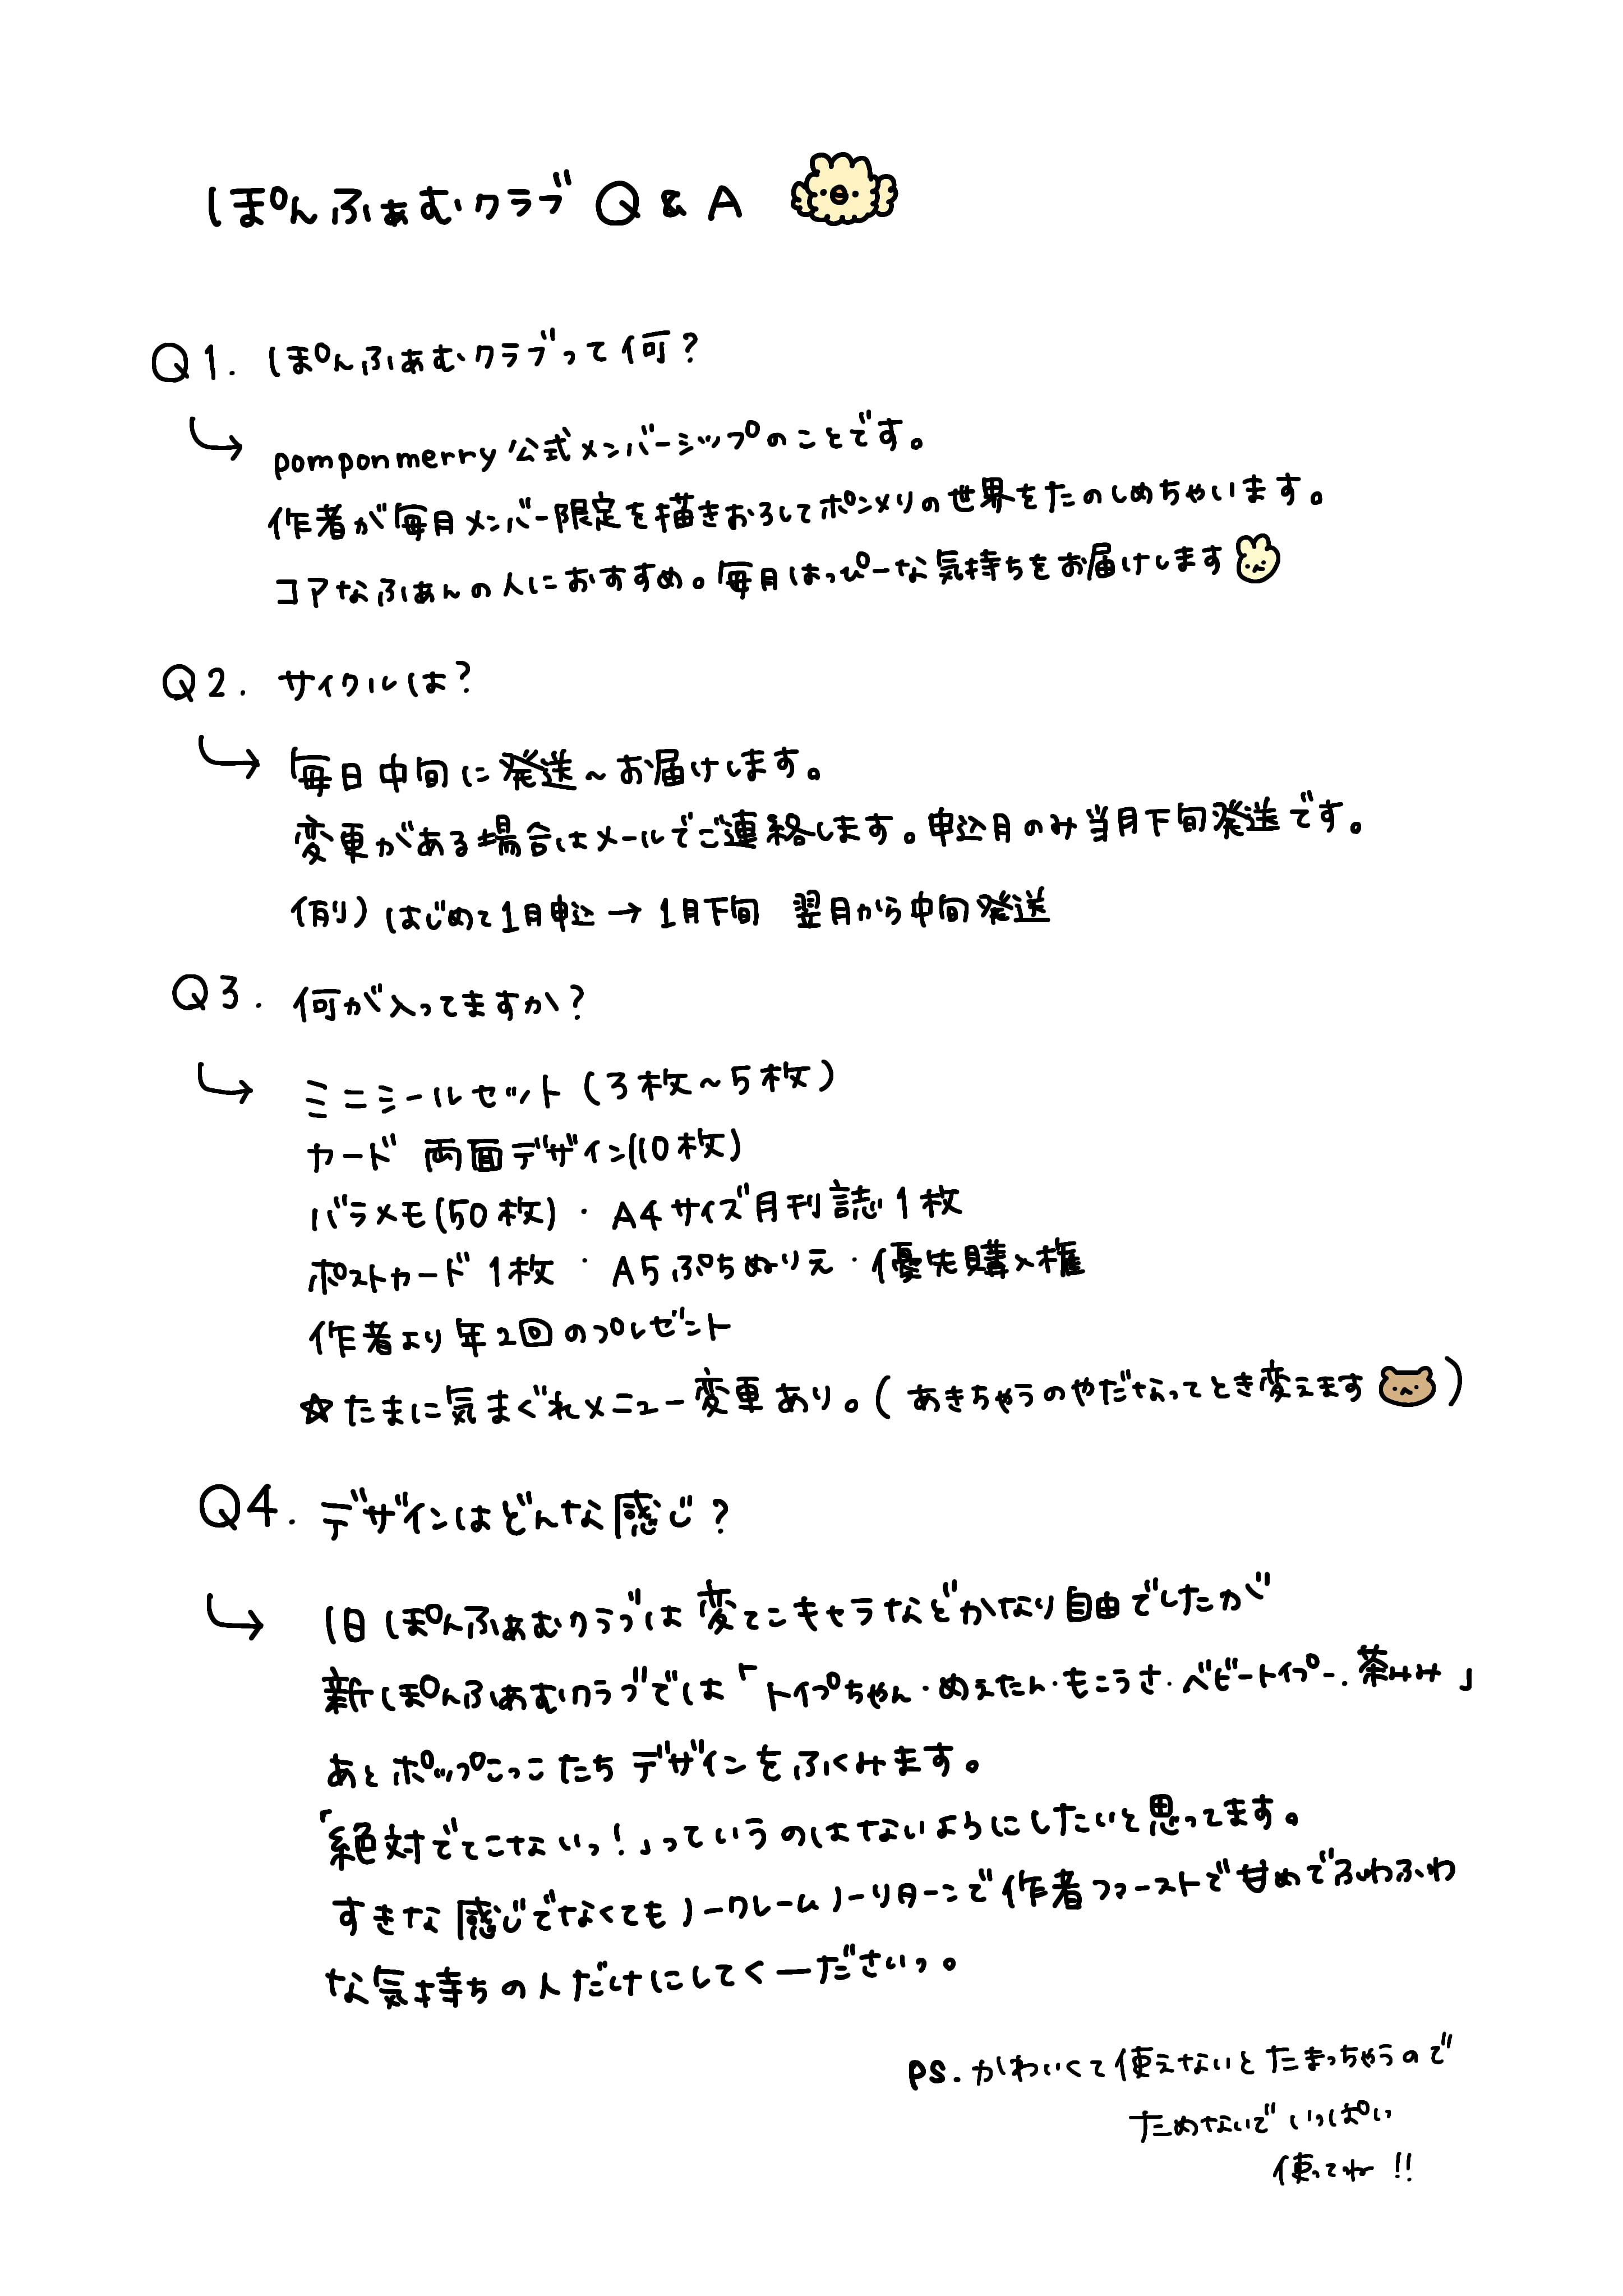 ぽんふぁむクラブ Q & A
Q1. ぽんふぁむクラブって何?
pomponmerry 公式メンバーシップのことです。
作者が毎月メンバー限定を描きおろしてポンメリの世界をたのしめちゃいます。
コアなふぁんの人におすすめ。毎月はっぴーな気持ちをお届けします
Q2. サイクルは?
毎日中旬に発送~お届けします。
変更がある場合はメールでご連絡します。申込月のみ当月下旬発送です。
例) はじめて1月申込→1月下旬 翌月から中旬発送
Q3. 何が入ってますか?
ミニシールセット(3枚~5枚)
カード 両面デザイン(10枚)
バラメモ(50枚)・A4サイズ月刊誌1枚
ポストカード1枚・A5ぷちぬりえ・優先購入権
作者より年2回のプレゼント
☆たまに気まぐれメニュー変更あり。(あきちゃうのやだなってとき変えます)
Q4. デザインはどんな感じ?
旧ぽんふぁむクラブは変てこキャラなどかなり自由でしたが
新ぽんふぁむクラブでは「トイプちゃん・めぇたん・もこうさ・ベビートイプー・茶みみ」
あとポップこっこたちデザインをふくみます。
「絶対でてこないっ!」っていうのはないようにしたいと思ってます。
すきな感じでなくてもノークレームノーリターンで作者ファーストで甘めでふわふわ
な気持ちの人だけにしてくーださいっ。
PS. かわいくて使えないとたまっちゃうので
ためないでいっぱい
使ってね!!